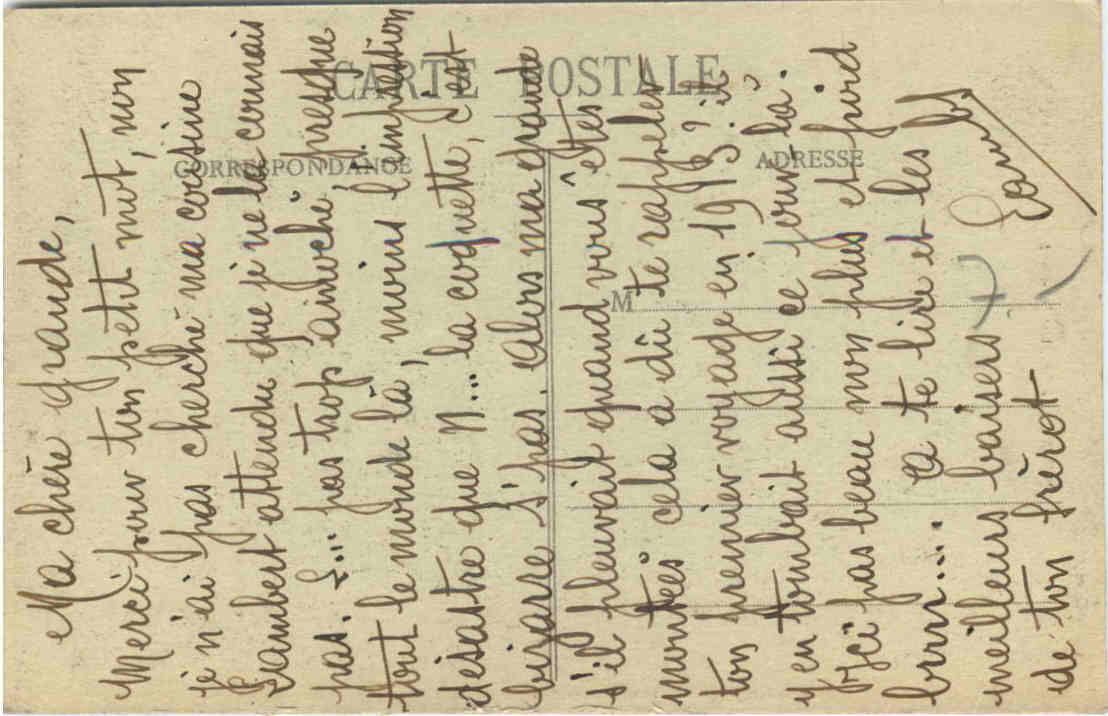 CARTE POSTALE
CORRESPONDANCE
ADRESSE
M
Ma chère grande,
Merci pour ton petit mot, non
je n'ai pas cherché ma cousine
Lambert attendu que je ne la connais
pas. L... pas trop amoché presque
tout le monde là, moins l'impression
désastre que N... la coquette, c'est
bizarre s'pas. Alors ma grande
s'il pleuvait quand vous êtes
montées cela a dû te rappeler
ton premier voyage en 1919, il
y en tombait aussi ce jour-là.
Ici pas beau non plus et froid
brrr... à te lire et les
meilleurs baisers
de ton frérot